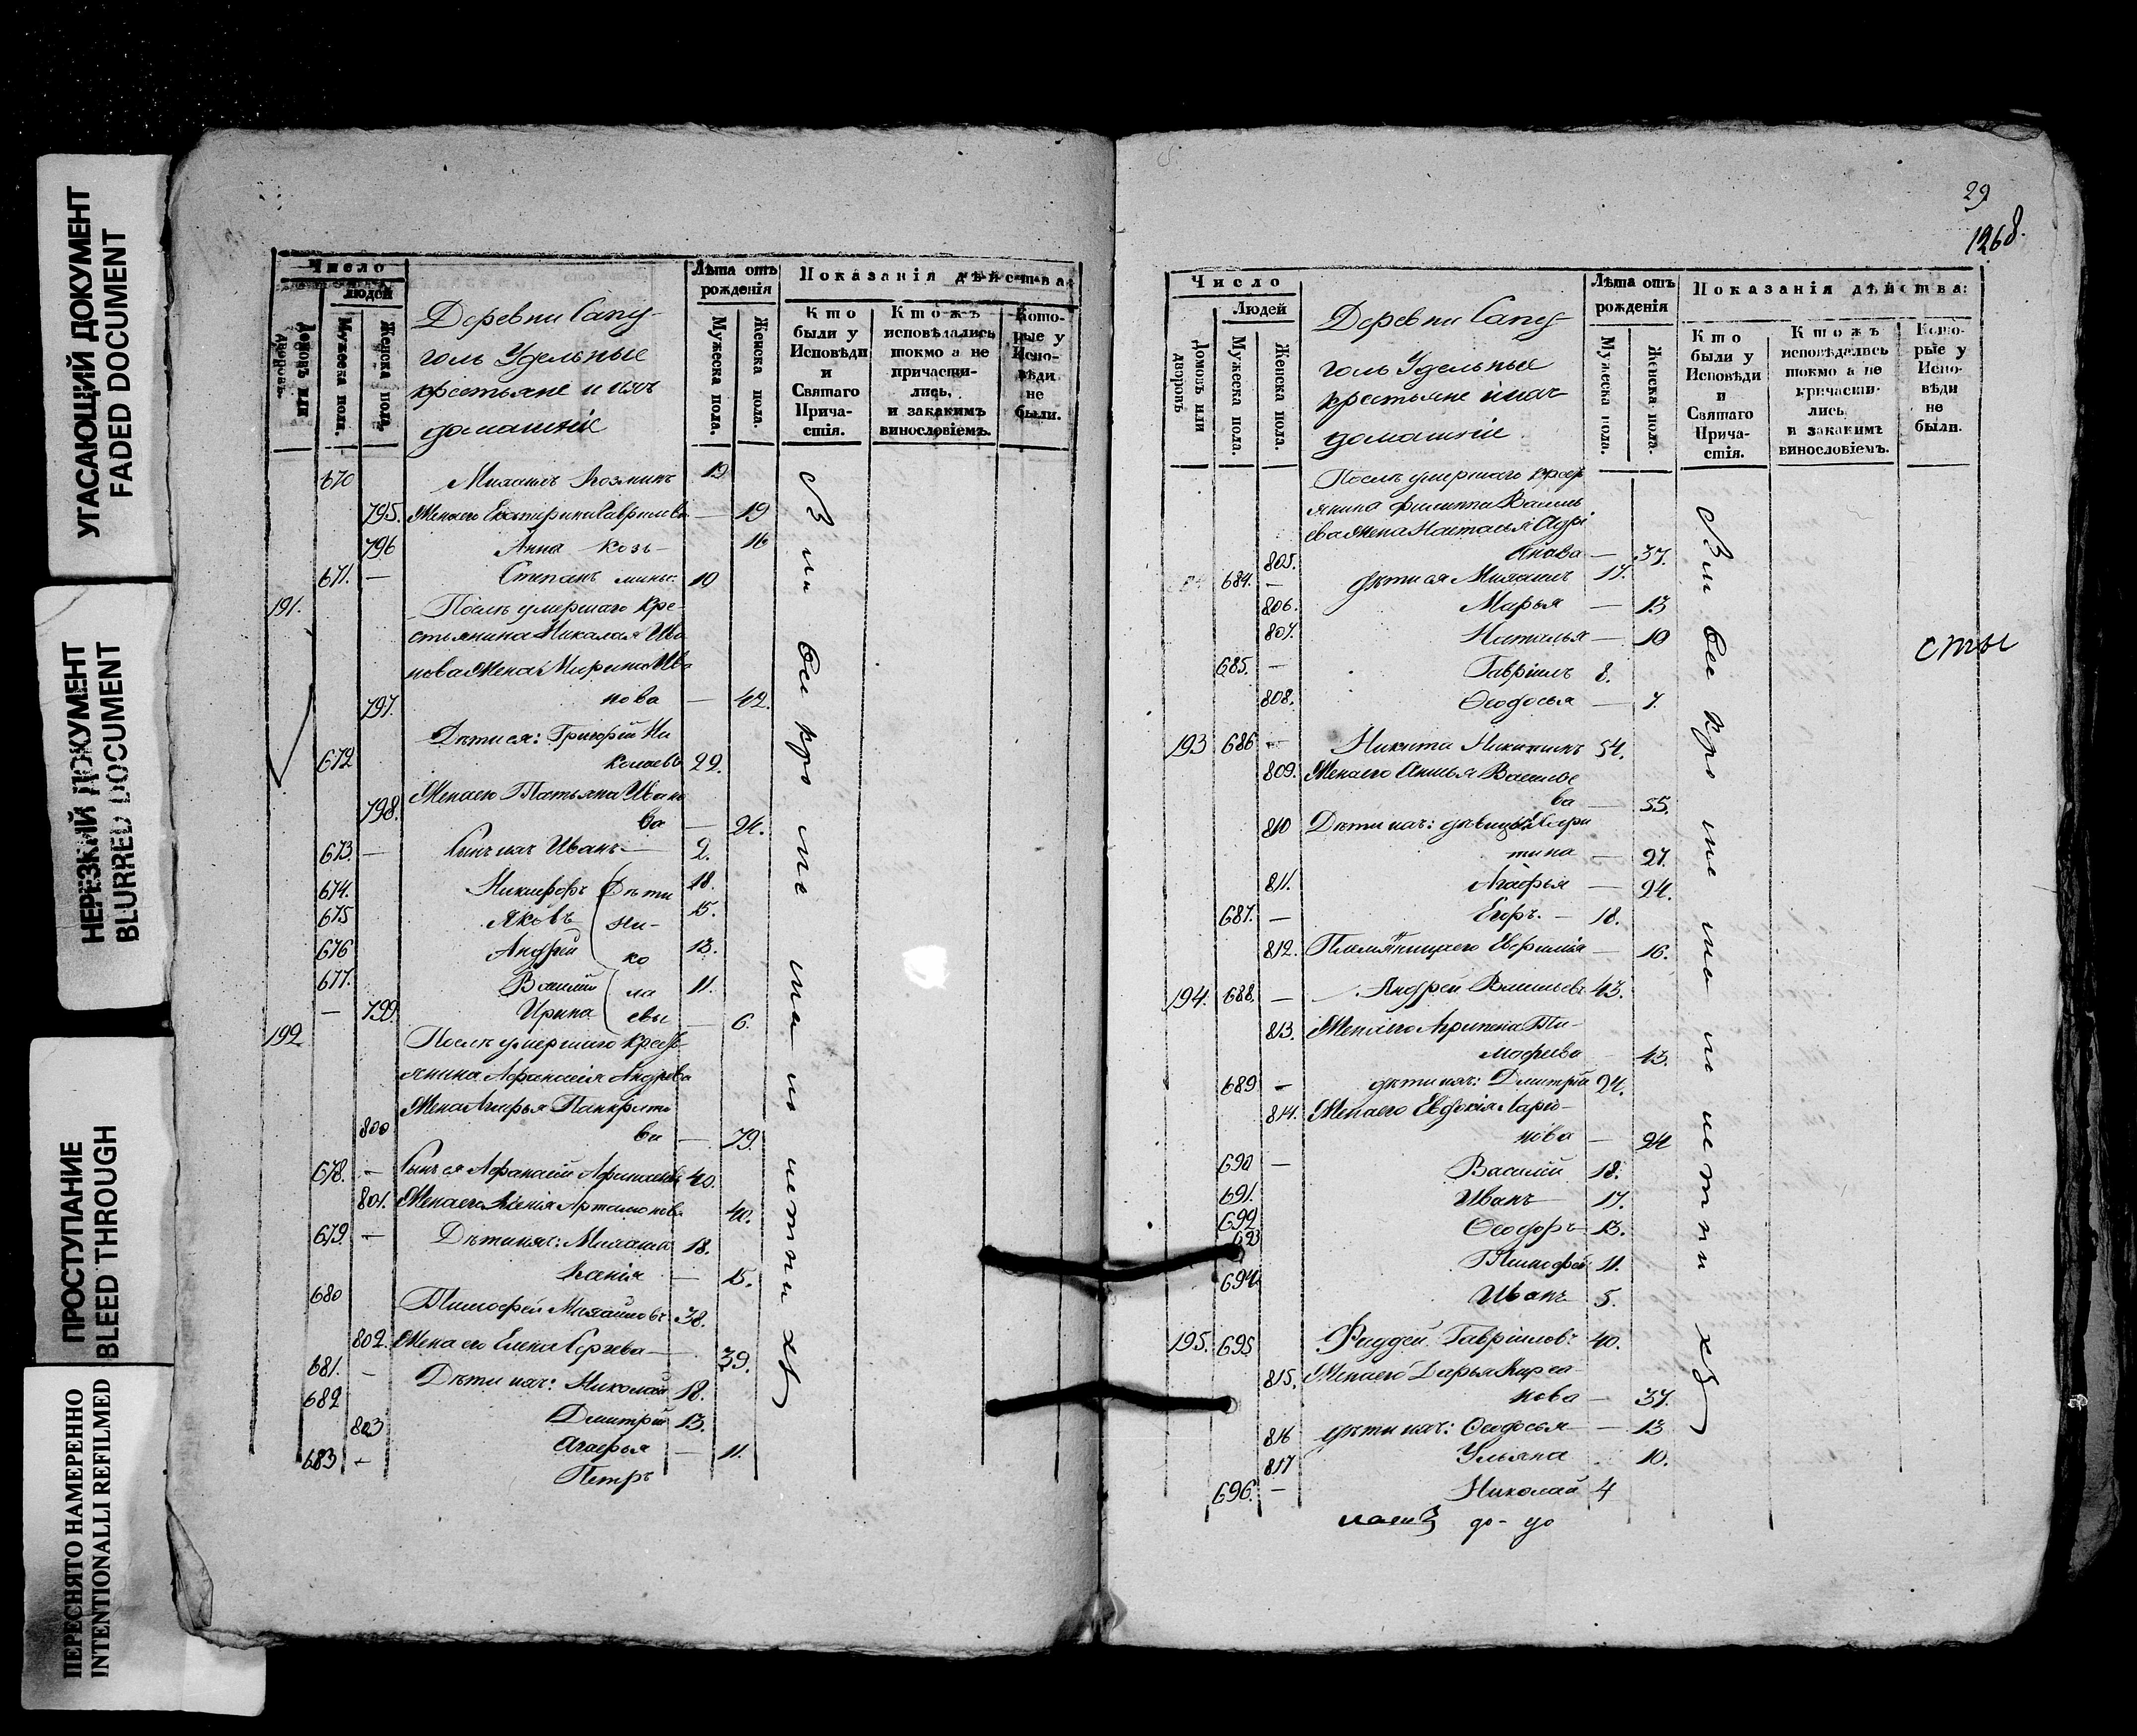 УГАСАЮЩИЙ ДОКУМЕНТ
FADED DOCUMENT
НЕРЕЗКИЙ ДОКУМЕНТ
BLURRED DOCUMENT
ПРОСТУПАНИЕ
BLEED THROUGH
ПЕРЕСНЯТО НАМЕРЕННО
INTENTIONALLI REFILMED
Число
людей
Домовъ или дворовъ.
Мужеска пола.
Женска пола.
Деревни Сапу-
голь Удельные
крестьяне и ихъ
домашніе
Лѣта отъ рожденія
Мужеска пола.
Женска пола.
Показанія дѣйства:
Кто были у Исповѣди и Святаго Прича- стія.
Ктожъ исповѣдались токмо а не причасти- лись, и закакимъ винословіемъ.
Кото- рые у Испо- вѣди не были.
670 Михаилъ Козминъ 19
795. Жена его Екатерина Гаврилова — 19
796 Анна Козь- 16
671. — Степанъ мины: 10
191. Послѣ умершаго кре-
стьянина Николая Ива
нова жена Марина Ива
797. нова — 42.
Дѣти ея: Григорій Ни
672 колаевъ 22.
Жена его Татьяна Ивано
798. ва — 24.
673. — Сынъ ихъ Иванъ — 2.
674. Никифоръ Дѣти 18.
675 Яковъ Ни- 15.
676 Андрей ко 13.
677. Василій ла 11.
— 799. Ирина евы — 6.
192 Послѣ умершаго крест-
янина Афанасія Андреева
Жена Марья Панкрато
800 ва — 79.
678. — Сынъ ея Афанасій Афанасьевъ 40.
801. Жена его Ксенія Артамонова 40.
679. — Дѣти ихъ: Михаилъ 18.
Ксенія — 15.
680 Тимофей Михайловъ 38.
802. Жена его Елена Сергеева — 39.
681. — Дѣти ихъ: Николай 18.
682 Дмитрій 13.
803 Агафья — 11.
683 — Петръ
29
1268.
Число
Людей
Домовъ или дворовъ
Мужеска пола.
Женска пола.
Деревни Сапу-
голь Удельные
крестьяне и ихъ
домашніе.
Лѣта отъ рожденія
Мужеска пола.
Женска пола.
Показанія дѣйства:
Кто были у Исповѣди и Святаго Прича- стія.
Ктожъ исповѣдались токмо а не причасти- лись, и закакимъ винословіемъ.
Кото- рые у Испо- вѣди не были.
Послѣ умершаго крест
янина Филиппа Василь
ева жена Настасья Адрі
805. анова — 37.
684. — дѣти ея Михаилъ 17.
806. Марья — 13
807. Наталья — 10
685. — Гавріилъ 8.
808. Ѳеодосья — 7.
сты
193 686 — Никита Никитинъ 54.
809. Жена его Анисья Василье
ва — 55.
810 Дѣти ихъ: дѣвица Екате
рина — 27.
811. Агафья — 24.
687. — Егоръ. — 18.
812. Племянница его Евфимія — 16.
194. 688. — Андрей Васильевъ 43.
813. Жена его Агрипена Ти-
мофеева 43.
689 — дѣти ихъ: Дмитрій 24.
814. Жена его Евдокія Ларіо-
нова — 24
690 — Василій 18.
691. Иванъ 17.
692 Ѳеодоръ 13.
693 Тимофей 11.
694. Иванъ 5.
195. 695 Фаддей Гавріиловъ 40.
815. Жена его Дарья Кирса
нова — 37.
816 дѣти ихъ: Ѳеодосья — 13
817 Ульяна 10.
696. — Николай 4